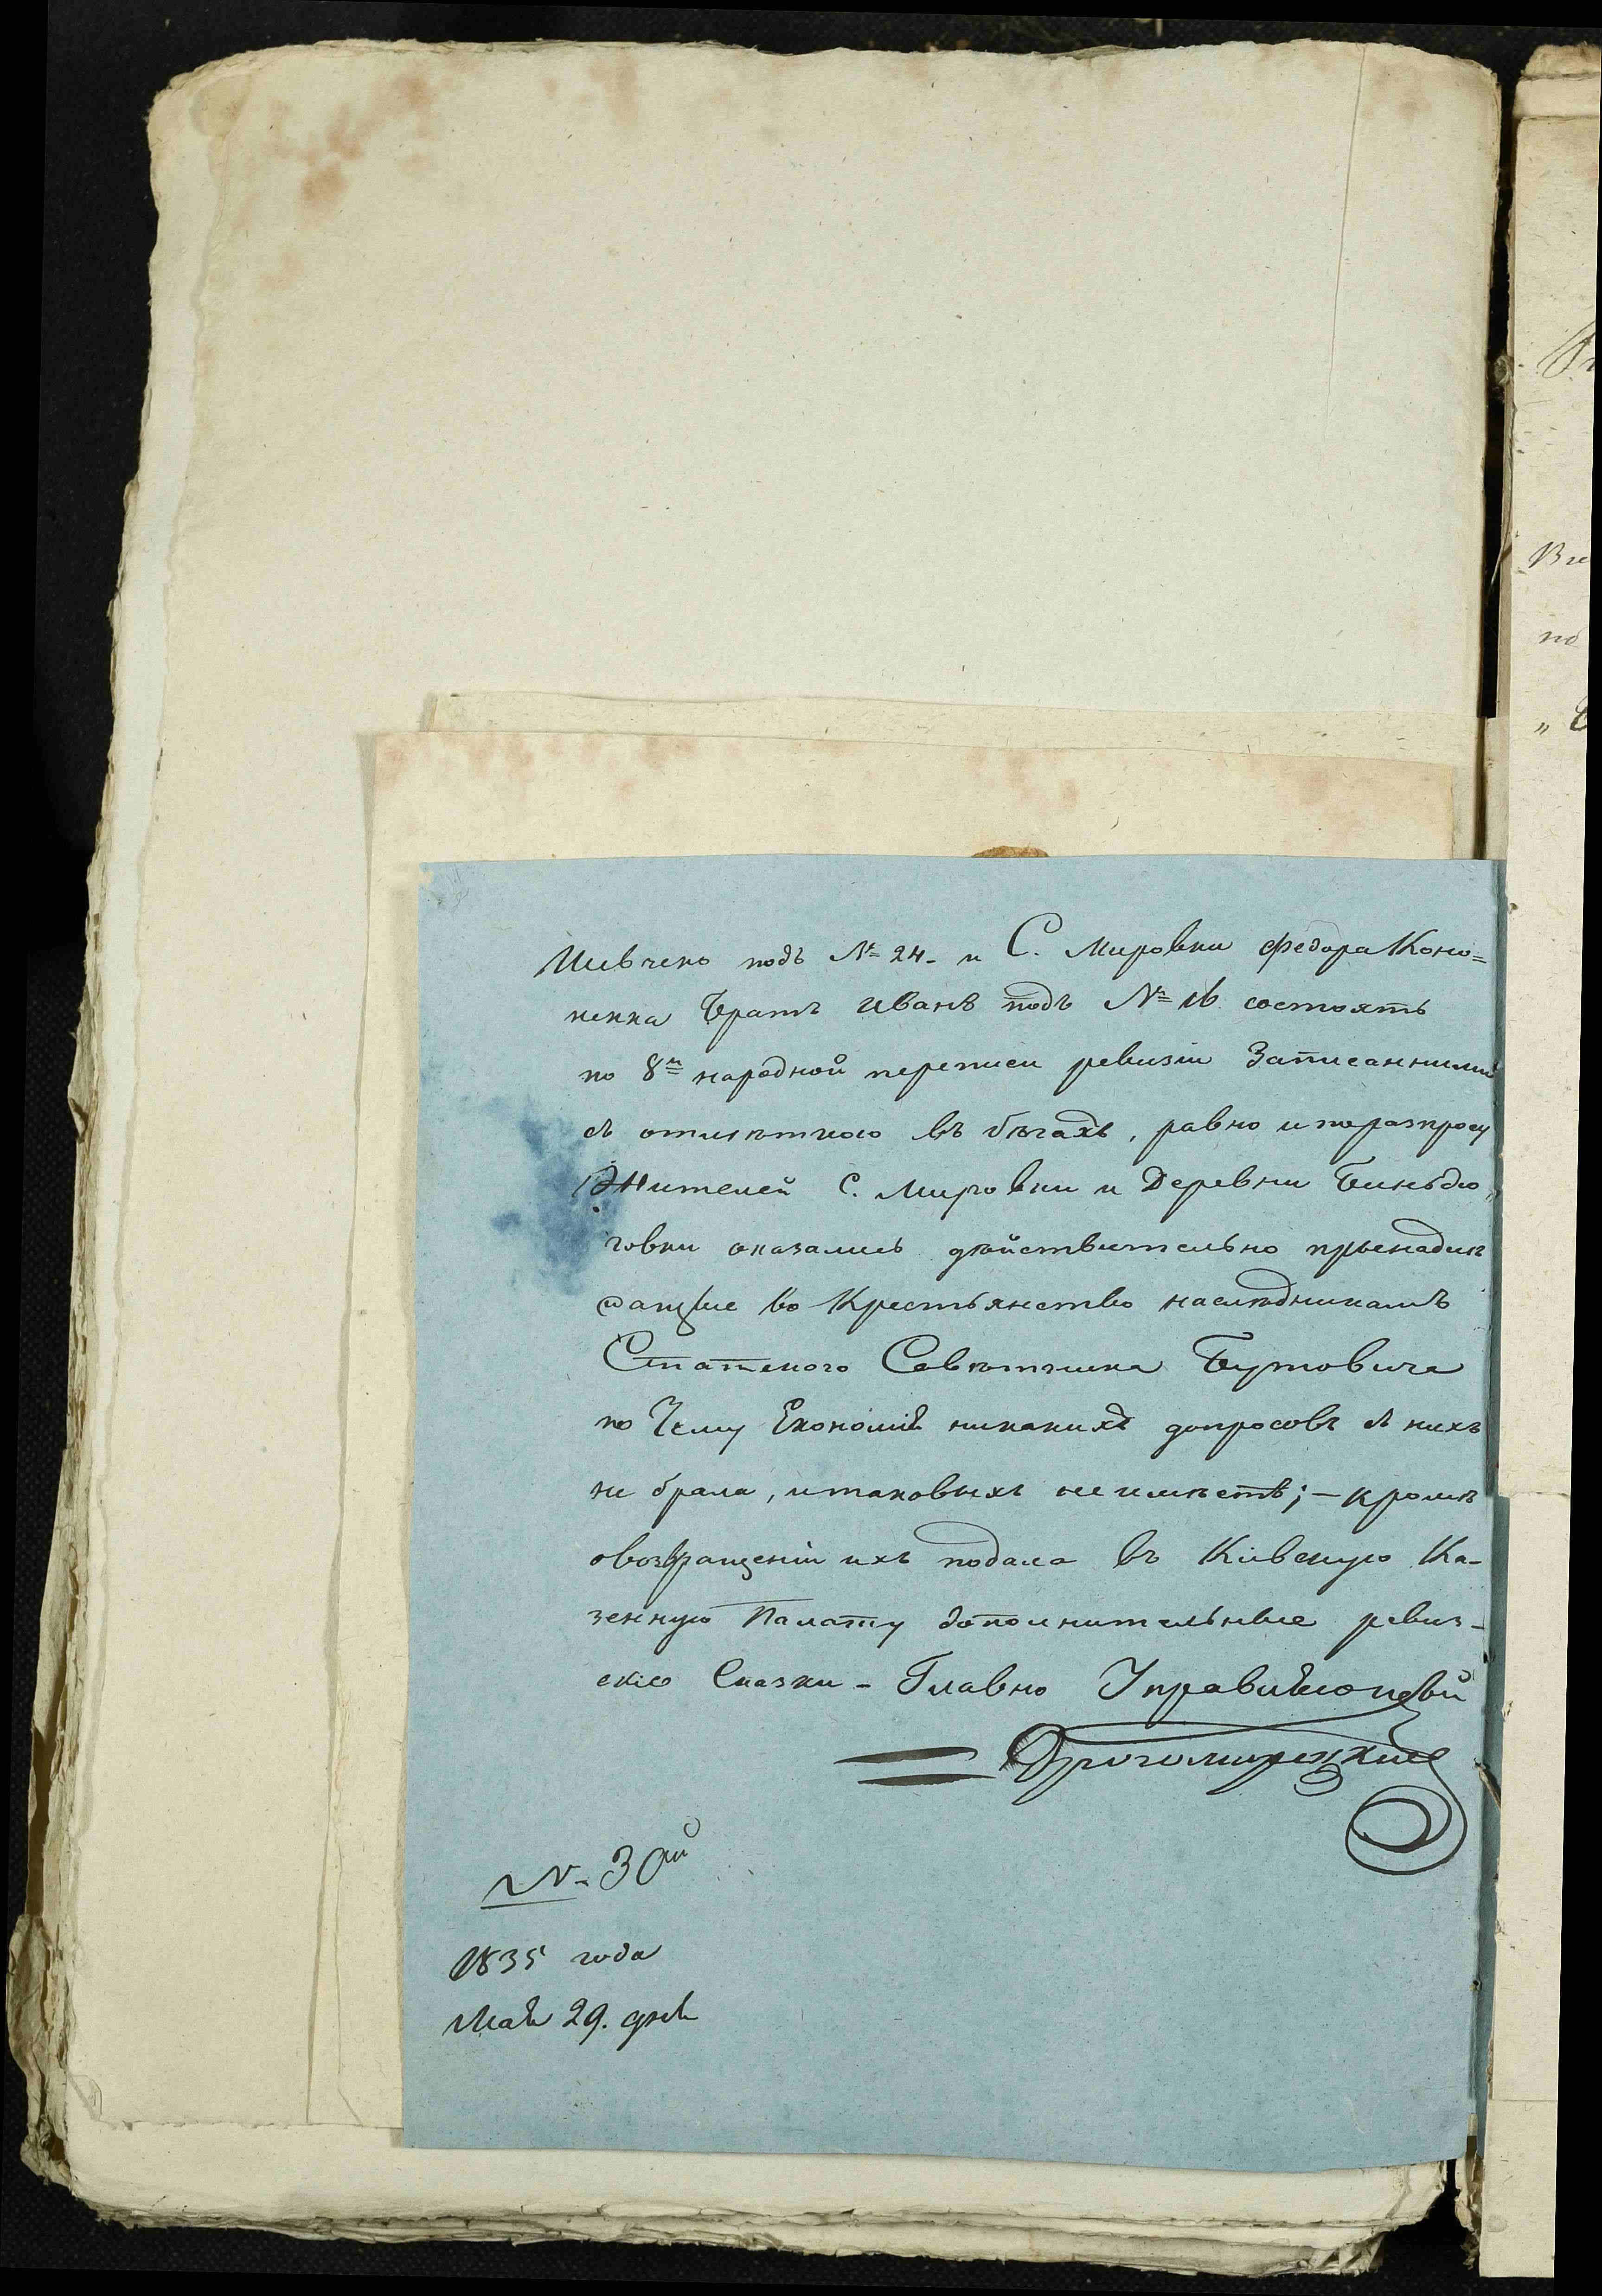 Шевченко подъ №= 24. и С. Мировки Федора Коно=
ненка Братъ Иванъ подъ №= 16 состоятъ
по 8й народной переписи ревизіи Записанними
съ отмѣткою въ бѣгахъ, равно и поразпросу
Жителей С. Мировки и Деревни
говки оказались дѣйствительно прынадле
жащіе во Крестьянство наслѣдникамъ
Статского Совѣтника Бутовича
по Чему Економія никакихъ допросовъ съ нихъ
не брала, итаковыхъ неимѣетъ; – кромѣ
овозвращеніи ихъ подала въ Кіевскую Ка-
зенную Палату дополнительные ревиз-
скіе Сказки – Главно Управляющій
№. 30й
1835 года
Мая 29. дня
Вче
по